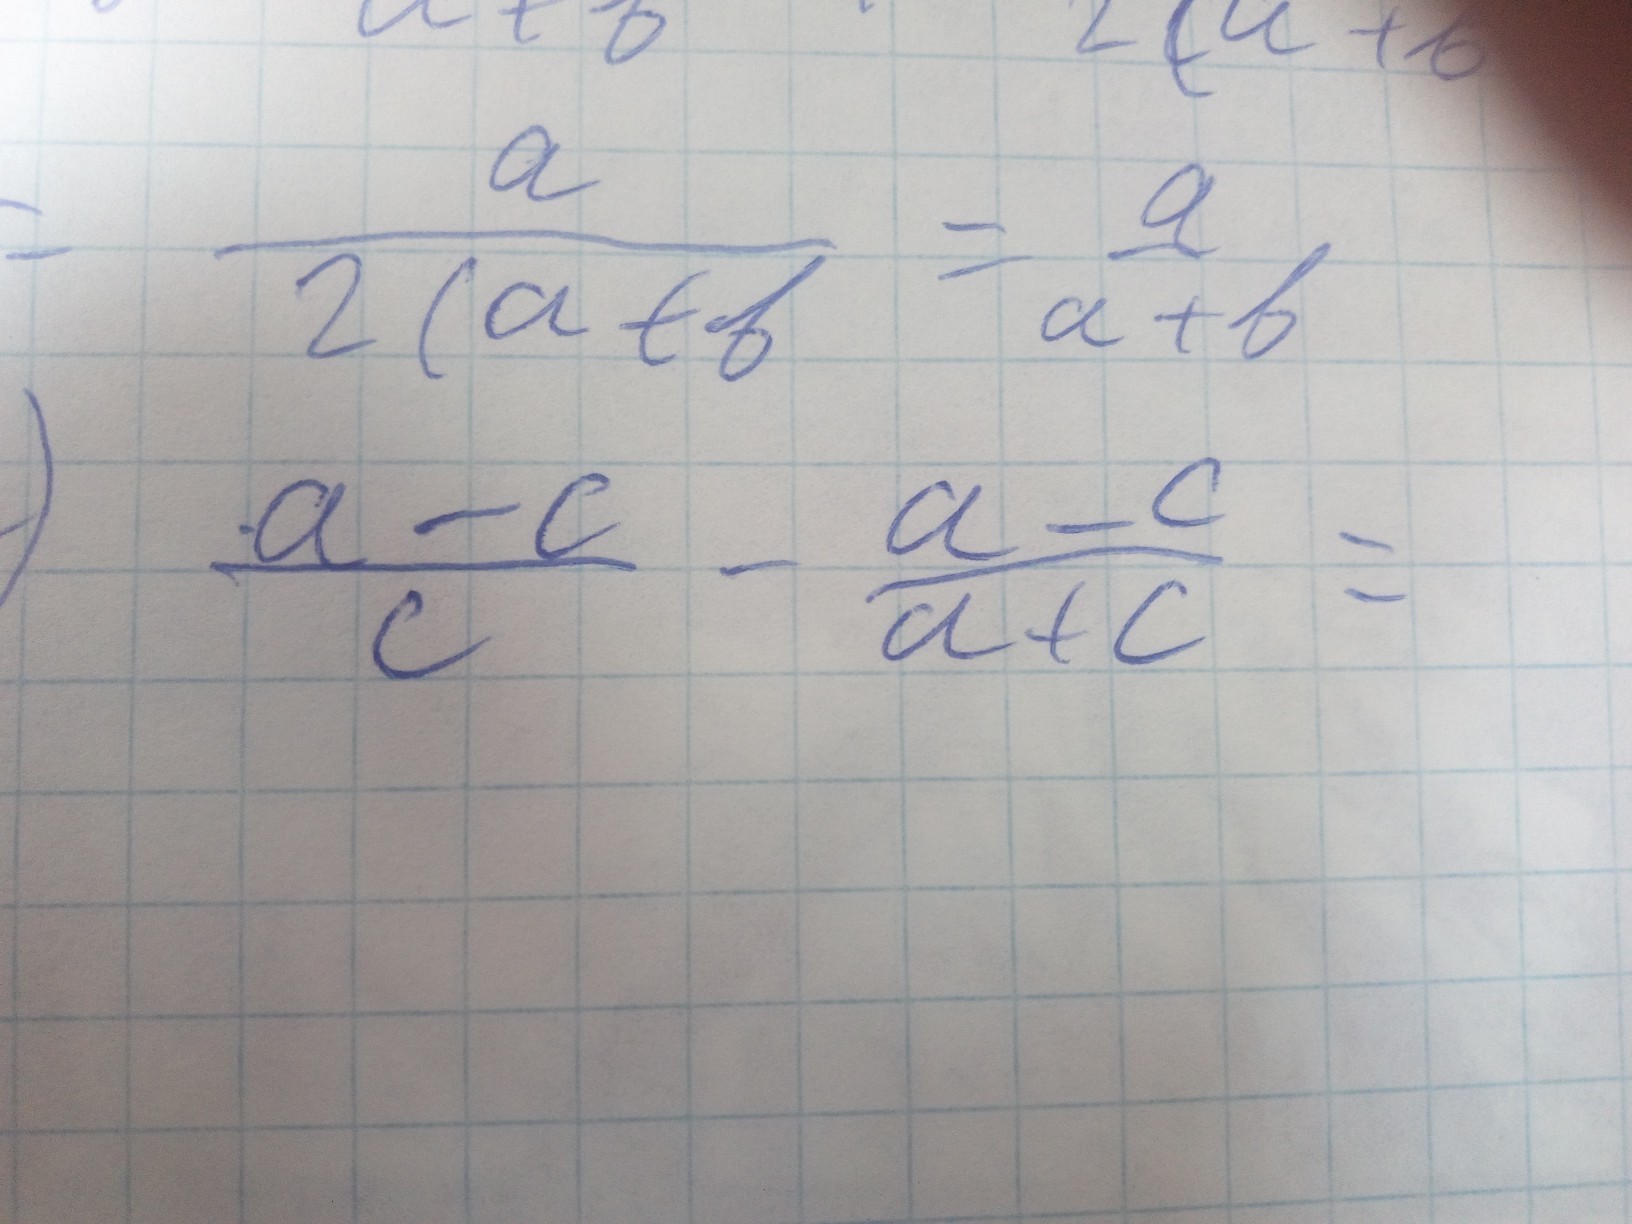 a + b 2(a + b
= a/(2(a + b) = a/(a + b)
) (a - c)/c - (a - c)/(a + c) =